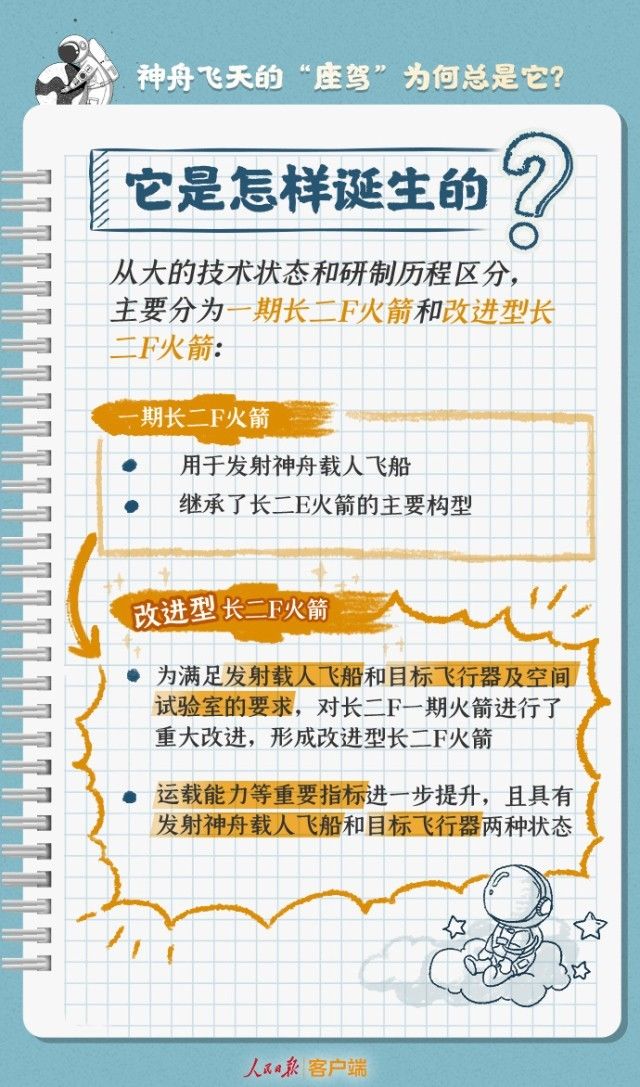 神舟飞天的“座驾”为何总是它?
它是怎样诞生的?
从大的技术状态和研制历程区分，
主要分为一期长二F火箭和改进型长
二F火箭：
一期长二F火箭
用于发射神舟载人飞船
继承了长二E火箭的主要构型
改进型 长二F火箭
为满足发射载人飞船和目标飞行器及空间
试验室的要求，对长二F一期火箭进行了
重大改进，形成改进型长二F火箭
运载能力等重要指标进一步提升，且具有
发射神舟载人飞船和目标飞行器两种状态
人民日报 客户端